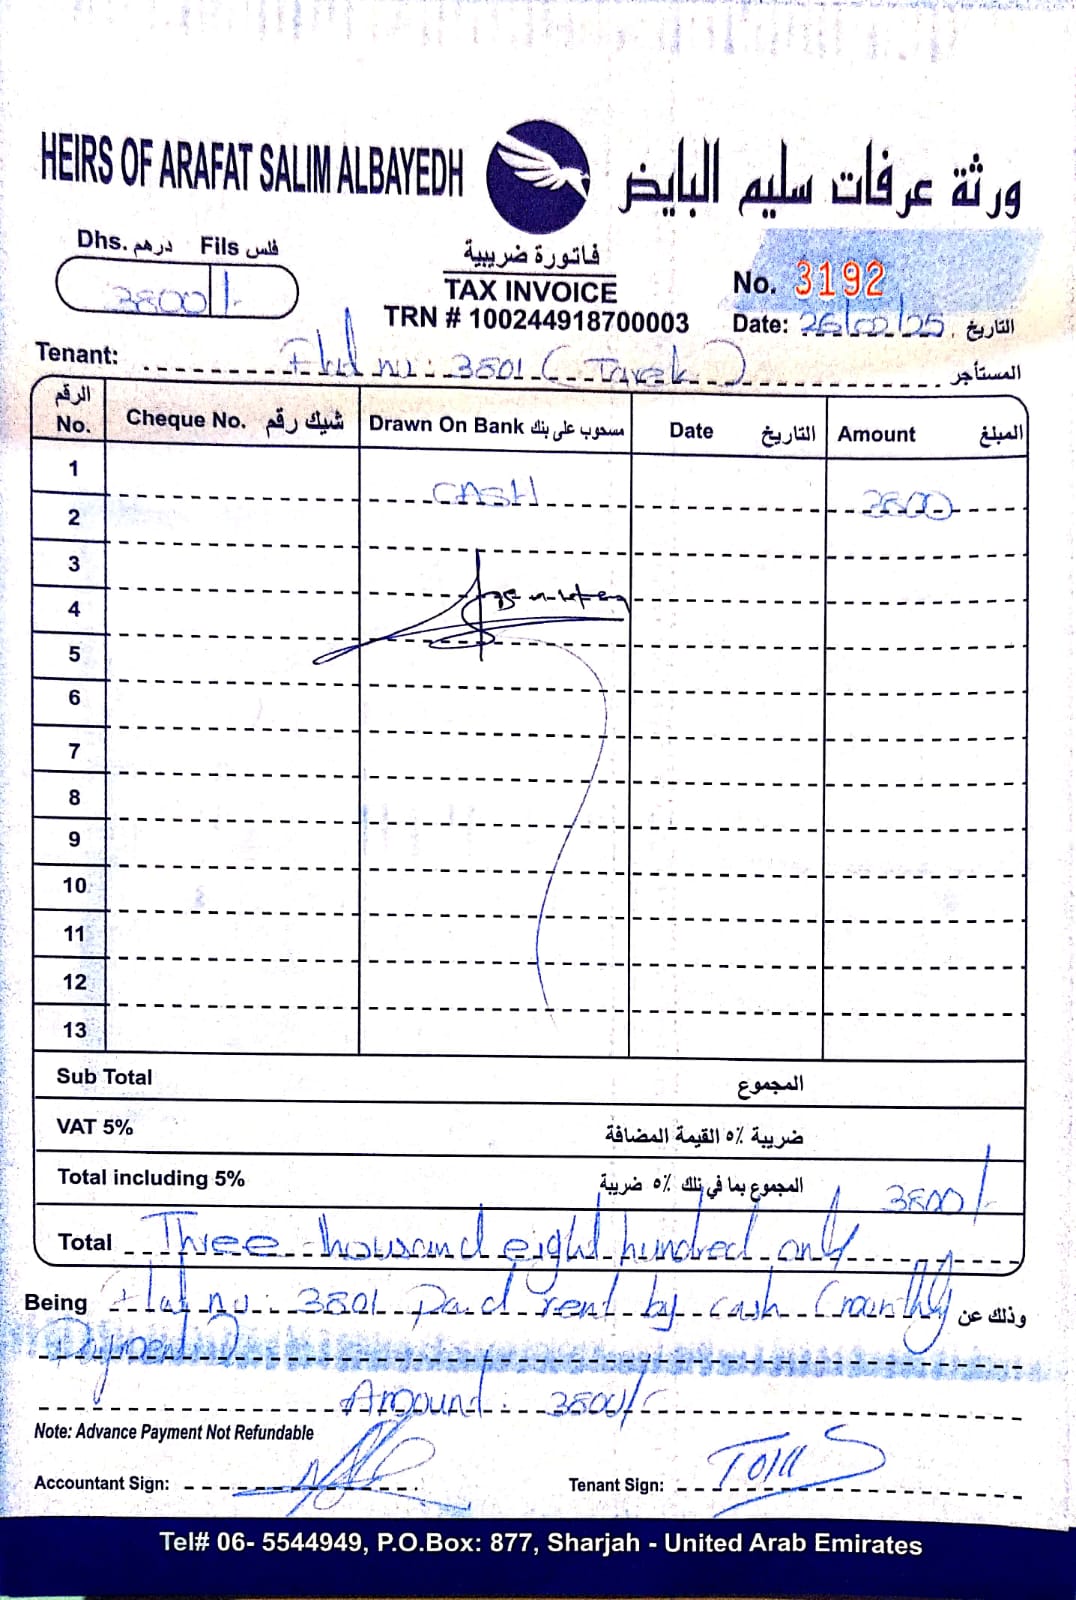 HEIRS OF ARAFAT SALIM ALBAYEDH ورثة عرفات سليم البايض
Dhs. درهم Fils فلس
3800/-
فاتورة ضريبية
TAX INVOICE
TRN # 100244918700003
No. 3192
Date: 26/02/25 التاريخ
Tenant: Flat no: 3801 (Tarek) المستأجر
الرقم No. Cheque No. شيك رقم Drawn On Bank مسحوب على بنك Date التاريخ Amount المبلغ
1 CASH 3800
2
3
4
5
6
7
8
9
10
11
12
13
Sub Total المجموع
VAT 5% ضريبة ٥% القيمة المضافة
Total including 5% المجموع بما في ذلك ٥% ضريبة 3800/-
Total Three thousand eight hundred only
Being Flat no: 3801 Paid rent by cash (monthly وذلك عن
Payment)
Amount: 3800/-
Note: Advance Payment Not Refundable
Accountant Sign: Tenant Sign:
Tel# 06- 5544949, P.O.Box: 877, Sharjah - United Arab Emirates